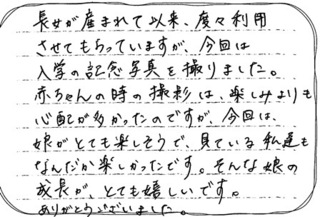 長女が産まれて以来、度々利用
させてもらっていますが、今回は
入学の記念写真を撮りました。
赤ちゃんの時の撮影は、楽しみよりも
心配が多かったのですが、今回は、
娘がとても楽しそうで、見ている私達も
なんだか楽しかったです。そんな娘の
成長が、とても嬉しいです。
ありがとうございました。